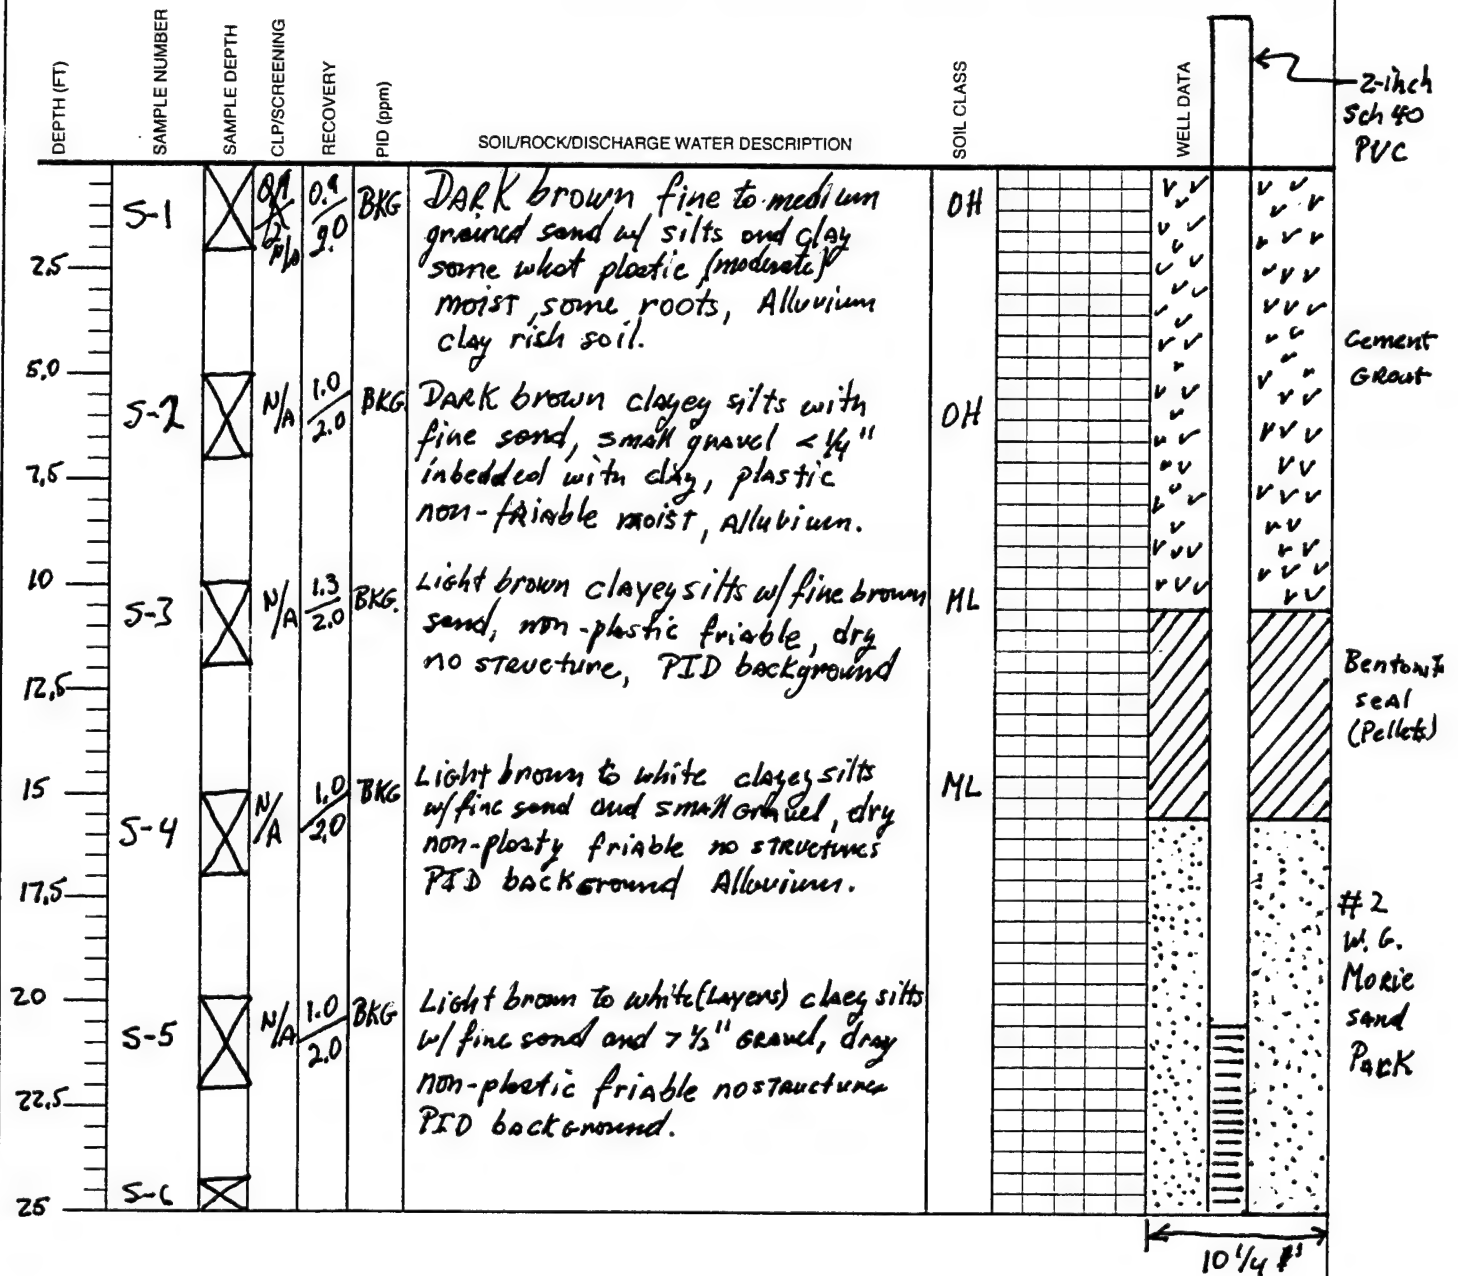 DEPTH (FT)
SAMPLE NUMBER
SAMPLE DEPTH
CLP/SCREENING
RECOVERY
PID (ppm)
SOIL/ROCK/DISCHARGE WATER DESCRIPTION
SOIL CLASS
WELL DATA
2-inch
Sch 40
PVC
S-1
N/A
0.9/2.0
BKG
DARK brown fine to medium
grained sand w/ silts and clay
some what plastic (moderate)
moist, some roots, Alluvium
clay rish soil.
OH
2.5
5.0
S-2
N/A
1.0/2.0
BKG
DARK brown clayey silts with
fine sand, small gravel < 1/4"
inbedded with clay, plastic
non-friable moist, Alluvium.
OH
Cement
Grout
7.5
10
S-3
N/A
1.3/2.0
BKG.
Light brown clayey silts w/ fine brown
sand, non-plastic friable, dry
no structure, PID background
ML
12.5
Bentonite
seal
(Pellets)
15
S-4
N/A
1.0/2.0
BKG
Light brown to white clayey silts
w/ fine sand and small Gravel, dry
non-plasty friable no structures
PID background Alluvium.
ML
17.5
#2
W.G.
Morie
sand
Pack
20
S-5
N/A
1.0/2.0
BKG
Light brown to white (Layers) claey silts
w/ fine sand and > 1/2" Gravel, dray
non-plastic friable no structures
PID background.
22.5
S-6
25
10 1/4